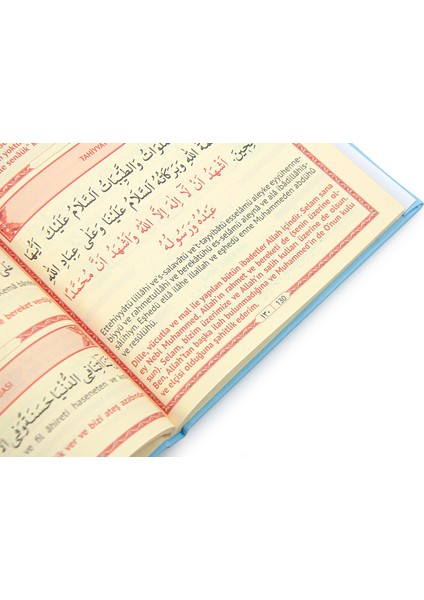 TAHİYYA
لصَّلَوَاتُ وَالطَّيِّبَاتُ اَلسَّلَامُ عَلَيْكَ اَيُّهَا
ةُ اللهِ وَبَرَكَاتُهُ اَلسَّلَامُ عَلَيْنَا وَعَلَى عِبَادِ اللهِ
لِحِينَ. اَشْهَدُ اَنْ لَا اِلٰهَ اِلَّا اللهُ وَاَشْهَدُ اَنَّ مُحَمَّدًا
عَبْدُهُ وَرَسُولُهُ
Ettehiyyâtü lillâhi ve's-salavâtü ve't-tayyibâtü esselâmü aleyke eyyühenne-
biyyü ve rahmetullâhi ve berekâtühü es-selâmü aleynâ ve alâ ibâdillâhis-
sâlihîyn. Eşhedü ellâ ilâhe illallah ve eşhedü enne Muhammeden abdühû
ve resûlühü
Dille, vücutla ve mal ile yapılan bütün ibadetler Allah içindir. Selam sana
ey Nebi, Muhammed, Allah'ın rahmet ve bereketi de (senin üzerine ol-
sun). Selam, bizim üzerimize ve Allah'ın salih kulları üzerine de olsun.
Ben, Allah'tan başka ilah bulunmadığına ve Muhammed'in de O'nun kulu
ve elçisi olduğuna şahitlik ederim.
١٣٠ 130
ASI
اٰتِنَا فِي الدُّنْيَا حَسَنَةً وَفِي
ve fil âhireti haseneten ve
ik ver ve bizi ateş azabınd